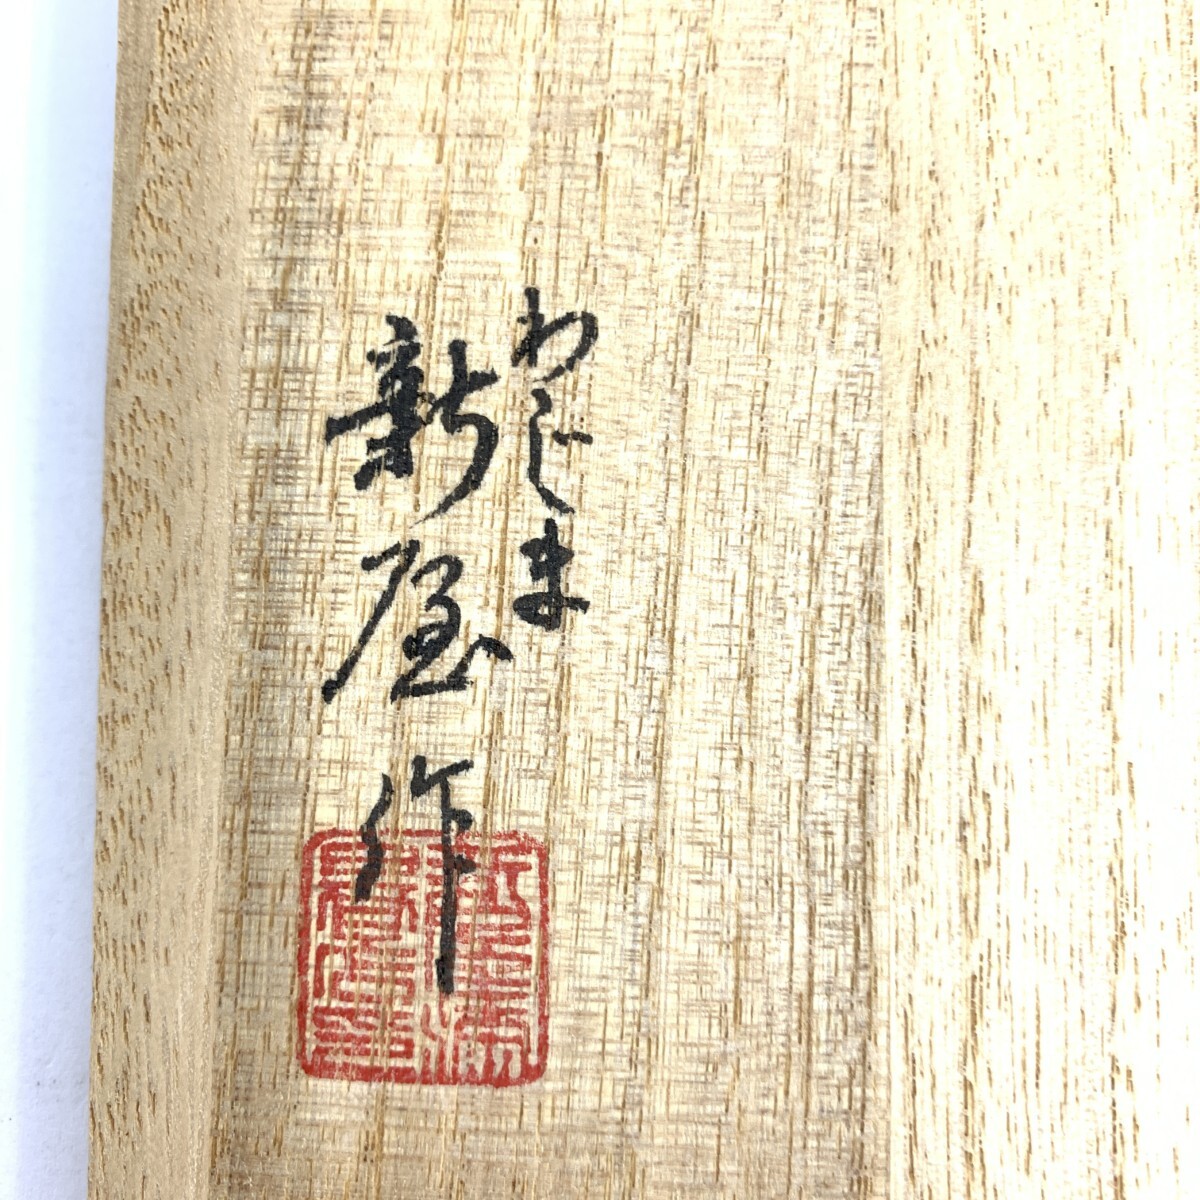 わじま
新屋作